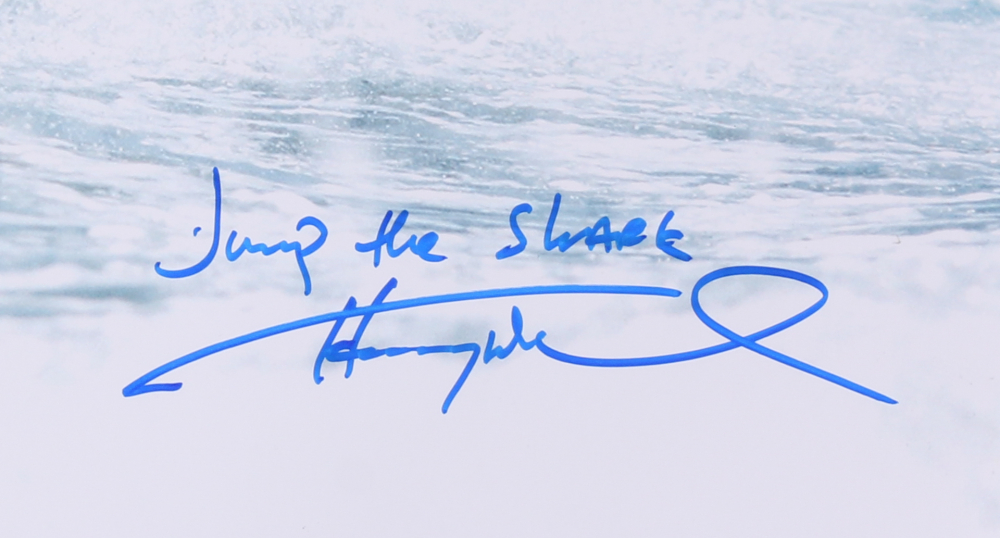 Jump the SHARK
Henry W